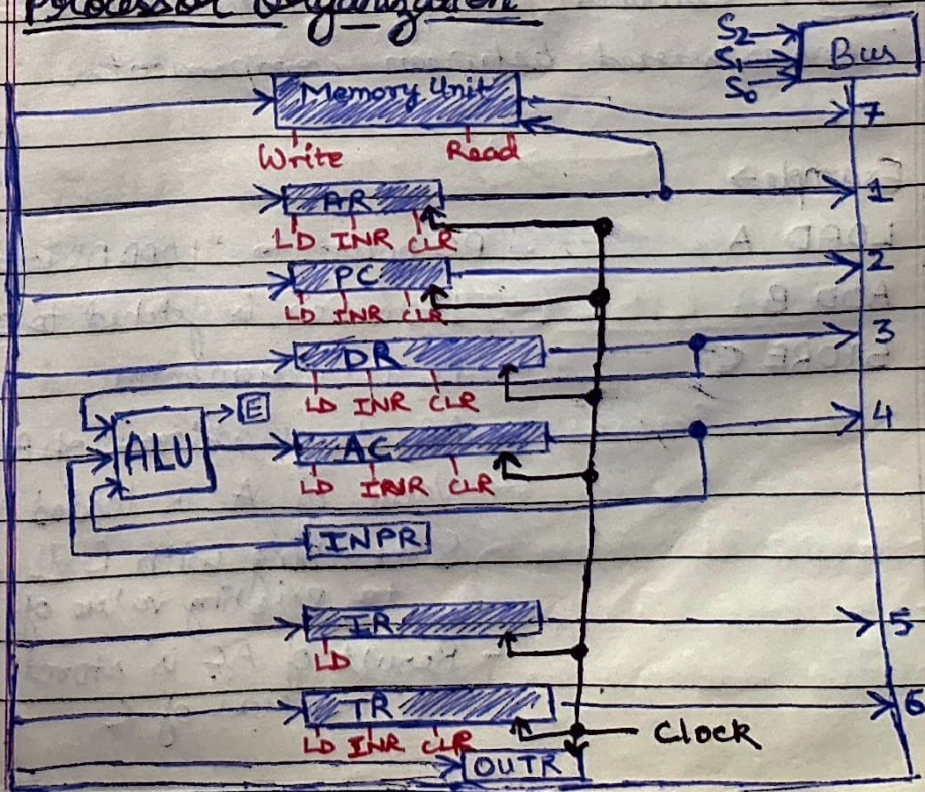 Processor Organization
S2
S1
S0
Bus
Memory Unit
7
Write Read
AR
1
LD INR CLR
PC
2
LD INR CLR
DR
3
LD INR CLR
E
4
ALU
AC
LD INR CLR
INPR
IR
5
LD
TR
6
LD INR CLR
Clock
OUTR